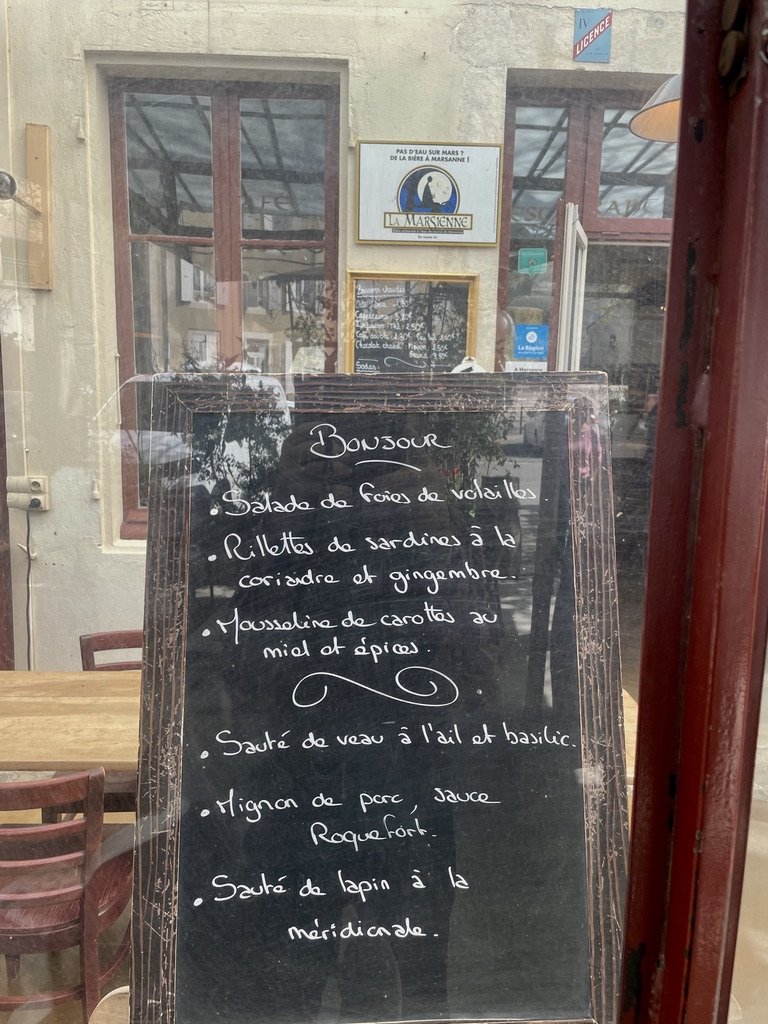 IV
LICENCE
PAS D'EAU SUR MARS ?
DE LA BIÈRE À MARSANNE !
LA MARSIENNE
Boissons chaudes
Cappuccino : 3,20€
Chocolat chaud :
Sodas :
La Région
A Marsanne
BONJOUR
• Salade de foies de volailles.
• Rillettes de sardines à la
coriandre et gingembre.
• Mousseline de carottes au
miel et épices.
• Sauté de veau à l'ail et basilic.
• Mignon de porc, sauce
Roquefort.
• Sauté de lapin à la
méridionale.